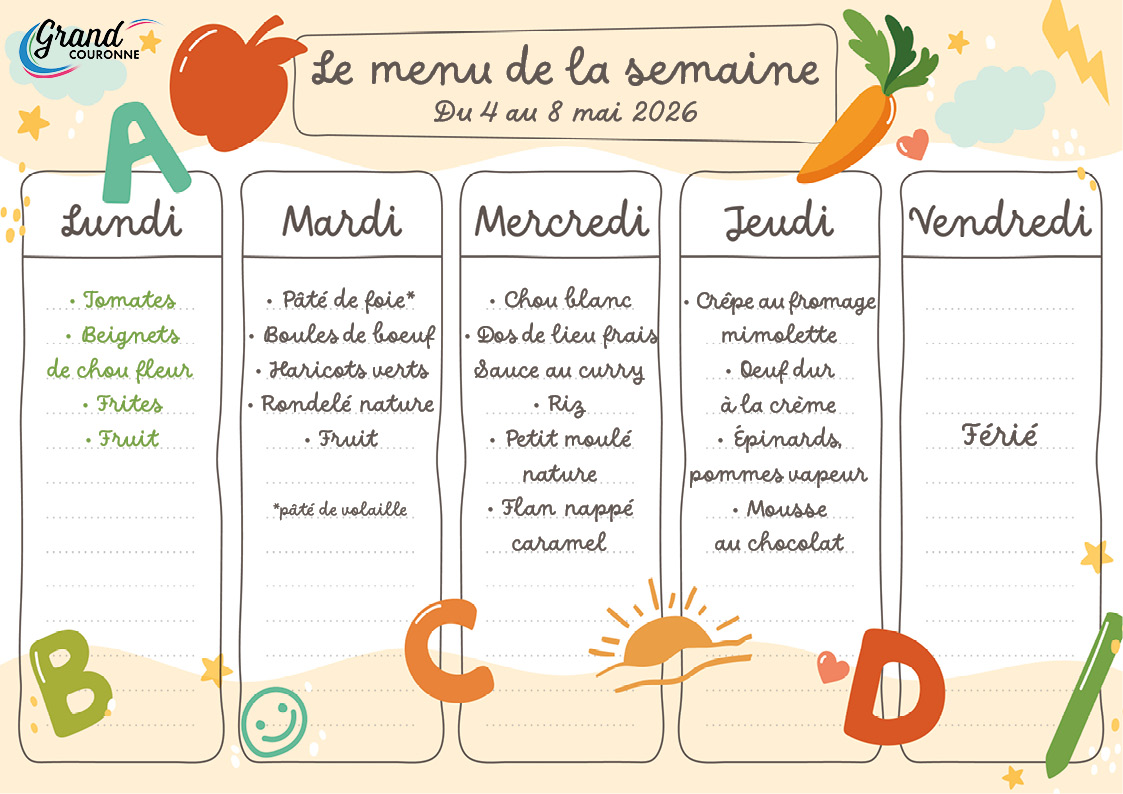 Grand
COURONNE
Le menu de la semaine
Du 4 au 8 mai 2026
A
Lundi
• Tomates
• Beignets
de chou fleur
• Frites
• Fruit
Mardi
• Pâté de foie*
• Boules de boeuf
• Haricots verts
• Rondelé nature
• Fruit
*pâté de volaille
Mercredi
• Chou blanc
• Dos de lieu frais
Sauce au curry
• Riz
• Petit moulé
nature
• Flan nappé
caramel
Jeudi
• Crêpe au fromage
mimolette
• Oeuf dur
à la crème
• Épinards,
pommes vapeur
• Mousse
au chocolat
Vendredi
Férié
B
C
D